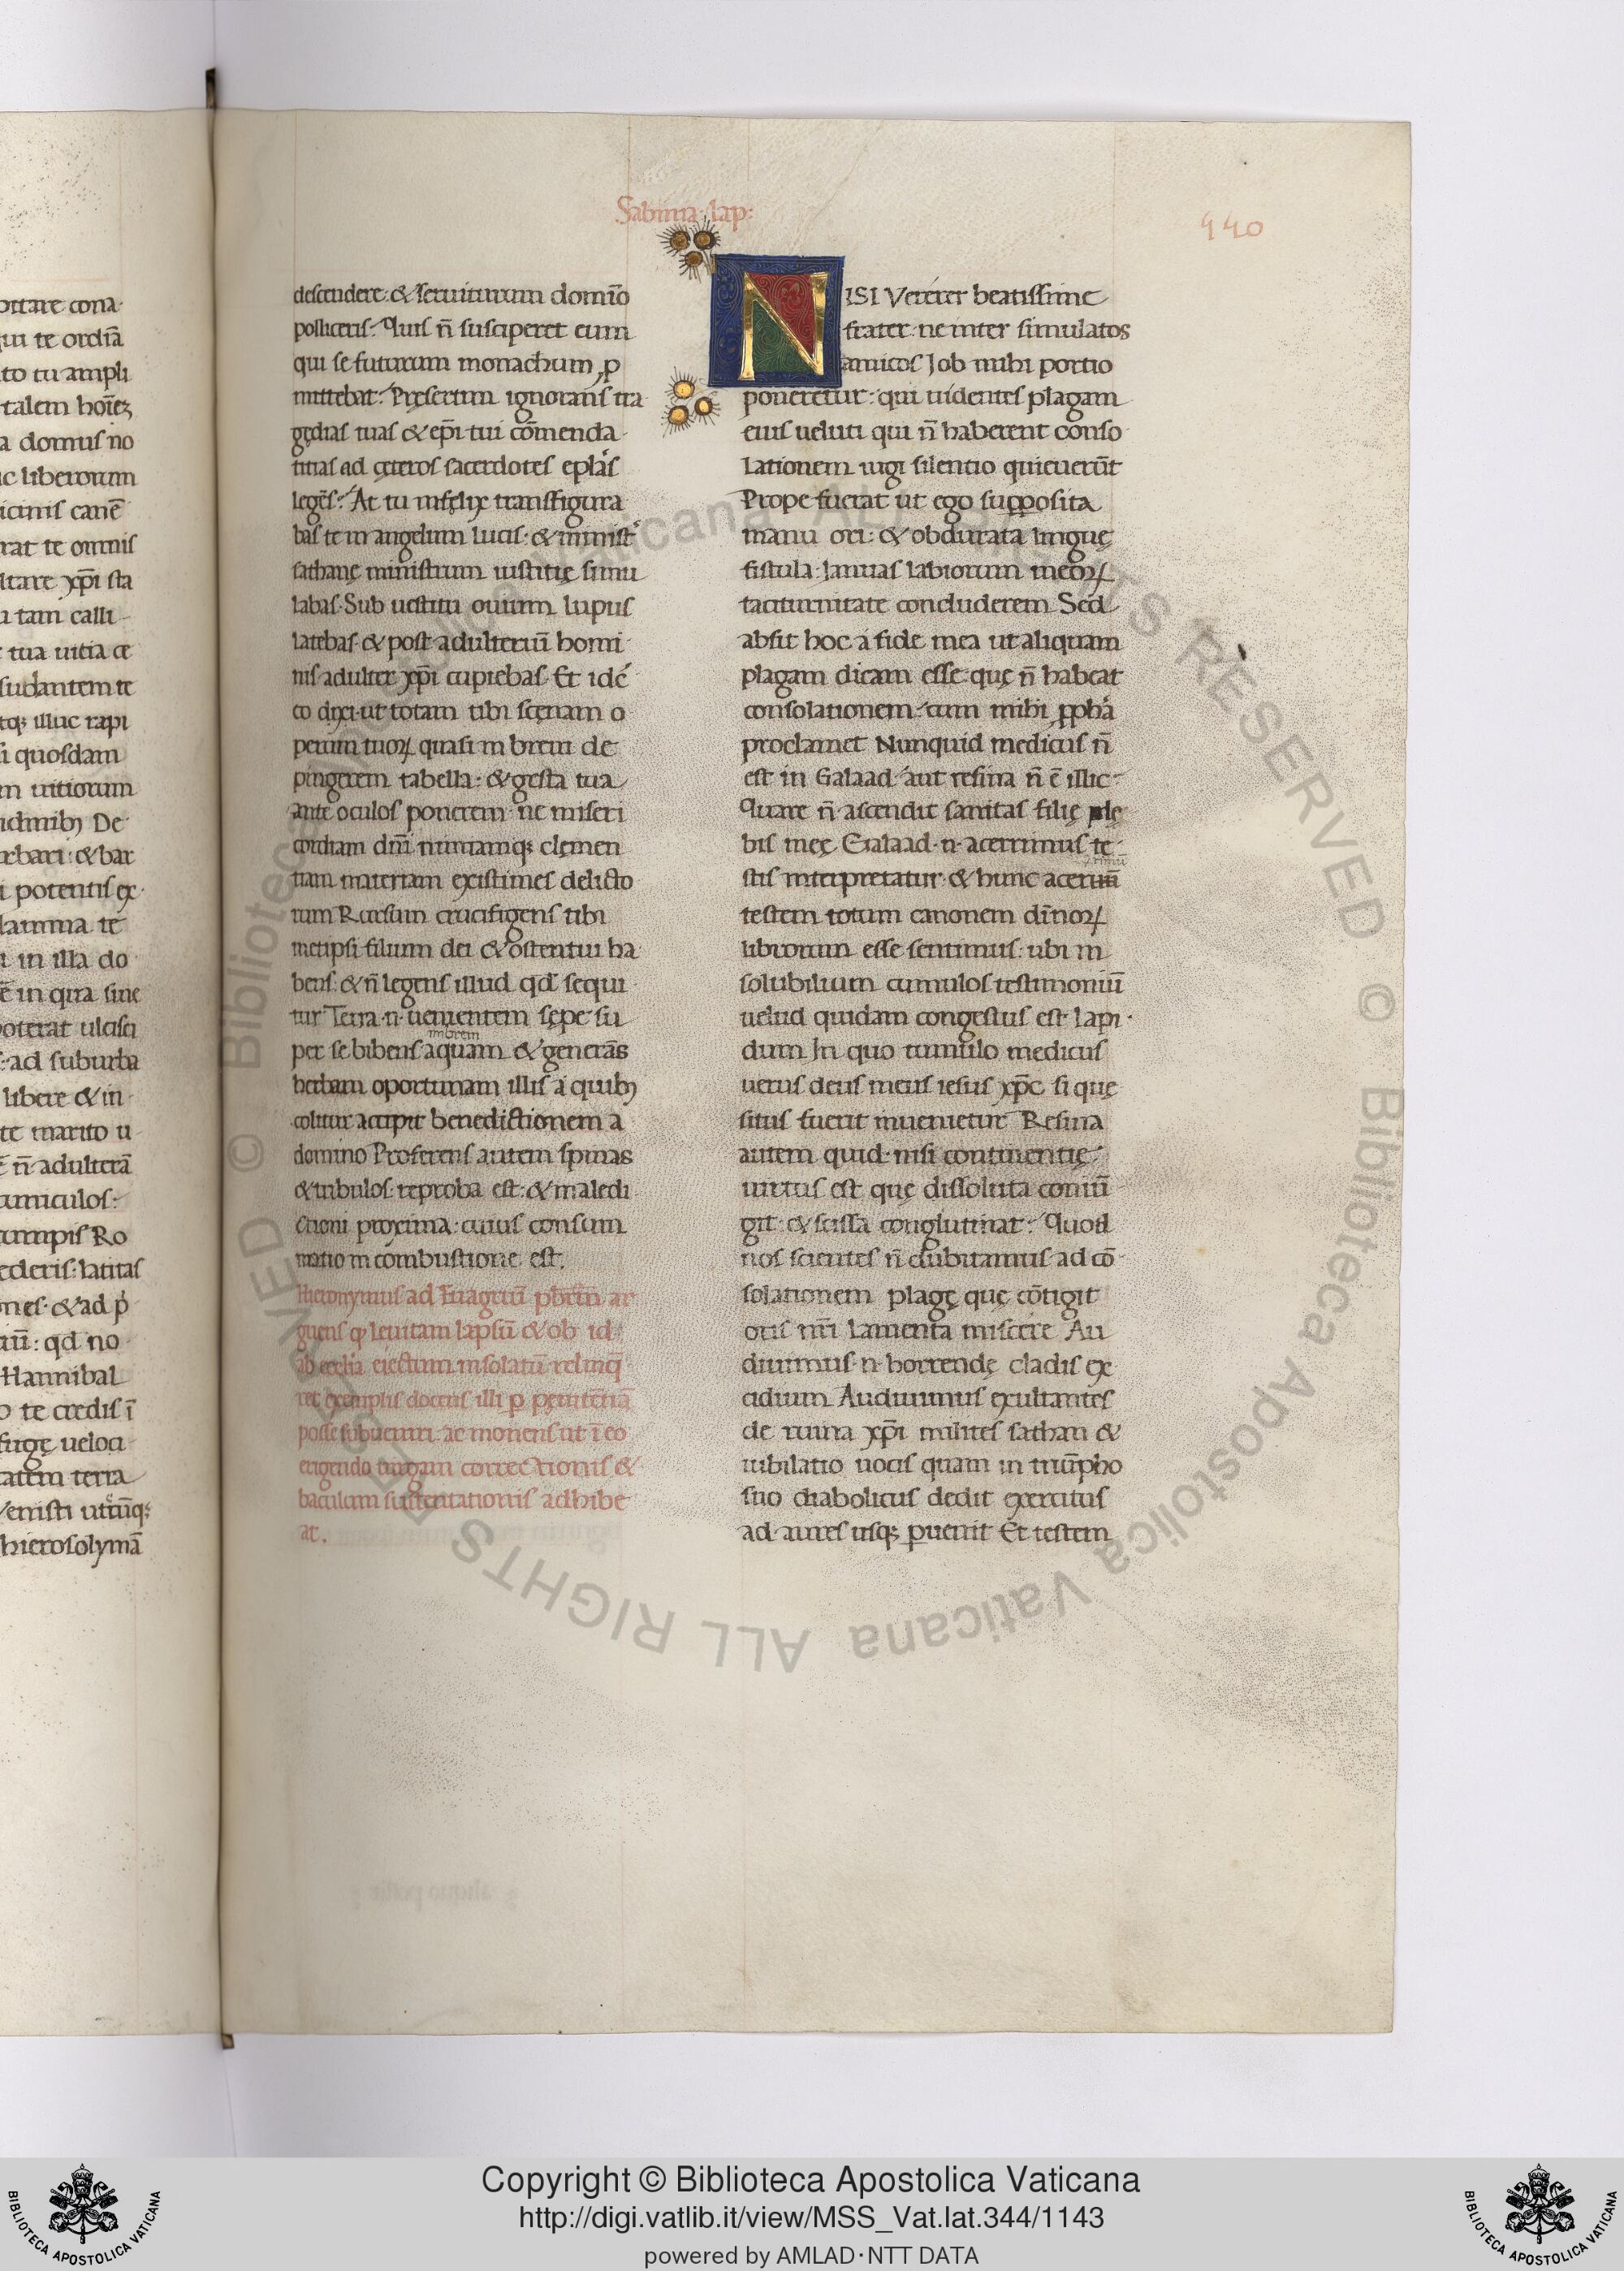 ottare cona
qui te ordiā
to tu ampli
talem hoīez
a domus no
c liberorum
icinis canē
rat te omnis
ltare xp̄i sta
u tam calli
tua uitia ce
sudantem te
tqꝫ illuc rapi
si quosdam
m uitiorum
De
rbari: & bar
i potentis ex
lamma te
i in illa do
ē in qira sine
poterat ulcisci
: ad suburba
libere & in
te marito u
n̄ adulterā
umculos:
campis Ro
ederis: latitas
nes· & ad p
qd no
Hannibal
o te credis ī
fugę ueloci
tatem terra
Venisti
hierosolymā
Sabina· lap:
440
descendere: & seruiturum domīo
polliceris? Quis n̄ susciperet eum
qui se futurum monachum ꝓ
mittebat? Pręsertim ignorans tra
gędias tuas & ep̄i tui cōmenda
titias ad cęteros sacerdotes eplās
legēs? At tu infęlix transfigura
bas te in angelum lucis: & minist
sathanę ministrum iustitię simu
labas· Sub uestitu ouium lupus
latebas· & post adulteriū homi
nis· adulter xp̄i cupiebas· Et idē
co dixi· ut totam tibi scęnam o
perum tuoꝝ quasi in breui de
pingerem tabella: & gesta tua
ante oculos ponerem· ne miseri
cordiam dn̄i nimiamqꝫ clęmen
tiam materiam existimes delicto
rum Rursum crucifigens tibi
metipsi filium dei & ostentui ha
bens: & n̄ legens illud qd̄ sequi
tur Terra ·n· uenientem sępe su
imbrem
per se bibens aquam & generās
herbam oportunam illis a quibꝫ
colitur accipit benedictionem a
domino Proferens autem spinas
& tribulos· reproba est: & maledi
ctioni proxima: cuius consum
matio in combustione est.
Hieronymus ad Euagriū pbrm̄ ar
guens ꝙ leuitam lapsū & ob id
ab ecclīa eiectum insolatū relinq̄
ret exemplis docens illi ꝑ pęnitētiā
posse subueniri: ac monens ut ī eo
erigendo uirgam correctionis &
baculum sustentationis adhibe
at.
NISI Vererer beatissime
frater: ne inter simulatos
amicos Job mihi portio
poneretur: qui uidentes plagam
eius ueluti qui n̄ haberent conso
lationem iugi silentio quieuerūt
Prope fuerat ut ego supposita
manu ori: & obdurata linguę
fistula: Januas labiorum meoꝝ
taciturnitate concluderem Sed
absit hoc a fide mea ut aliquam
plagam dicam esse: quę n̄ habeat
consolationem: cum mihi ꝓphā
proclamet Nunquid medicus n̄
est in Galaad· aut resina n̄ ē illic
Quare n̄ ascendit sanitas filię plę
bis meę Galaad ·n· acerrimus te
stis interpretatur· & hunc acerum̄
testem totum canonem diīnoꝝ
librorum esse sentimus: ubi in
solubilium cumulos testimoniū
uelud quidam congestus est lapi
dum In quo tumulo medicus
uerus deus meus iesus xp̄c si quę
situs fuerit inuenietur Resina
autem quid· nisi continentię
uirtus est quę dissoluta coniū
git: & scissa conglutinat? Quod
nos scientes n̄ dubitamus ad cō
solationem plagę quę cōtigit
oris nr̄i lamenta miscere Au
diuimus ·n· horrendę cladis ex
cidium Audiuimus exultantes
de ruina xp̄i milites sathan &
iubilatio uocis quam in triūpho
suo diabolicus dedit exercitus
ad aures usqꝫ peruenit Et testem
Copyright © Biblioteca Apostolica Vaticana
http://digi.vatlib.it/view/MSS_Vat.lat.344/1143
powered by AMLAD·NTT DATA
BIBLIOTECA APOSTOLICA VATICANA
BIBLIOTECA APOSTOLICA VATICANA
© Biblioteca Apostolica Vaticana ALL RIGHTS RESERVED © Biblioteca Apostolica Vaticana ALL RIGHTS RESERVED